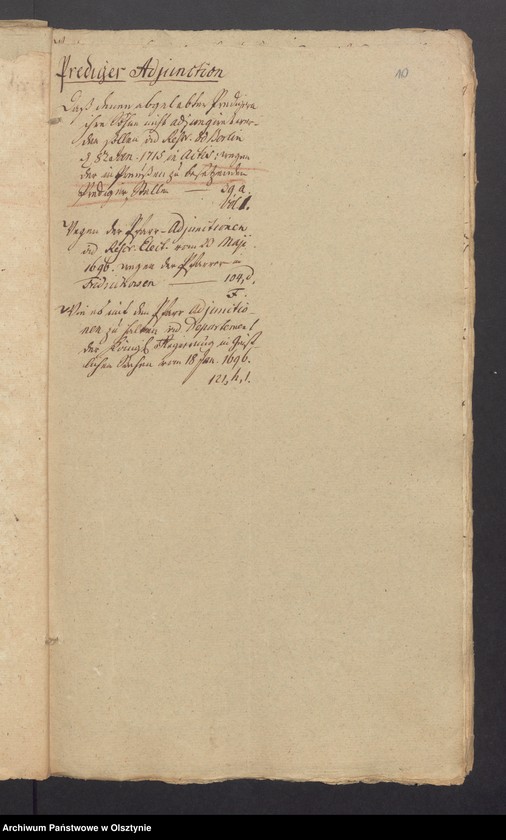 10
Prediger Adjunction
Daß denen abgelebten Predigern
ihre Söhne nicht adjungiret wer-
den sollen vid Rescr. dd Berlin
1715 in Actis: wegen
der zu besetzenden
Prediger Stellen — 59, a.
Vol 1.
Wegen der Pfarr-Adjunctionen
vid Rescr. Elect. vom 20 Maji
1696. wegen der Pfarrer in
— 104, d.
F.
Wie es mit den Pfarr Adjunctio
nen zu halten vid Departement
der Königl. Regierung in Geist-
lichen Sachen vom 18 Jan. 1696.
121, h, 1.
Archiwum Państwowe w Olsztynie